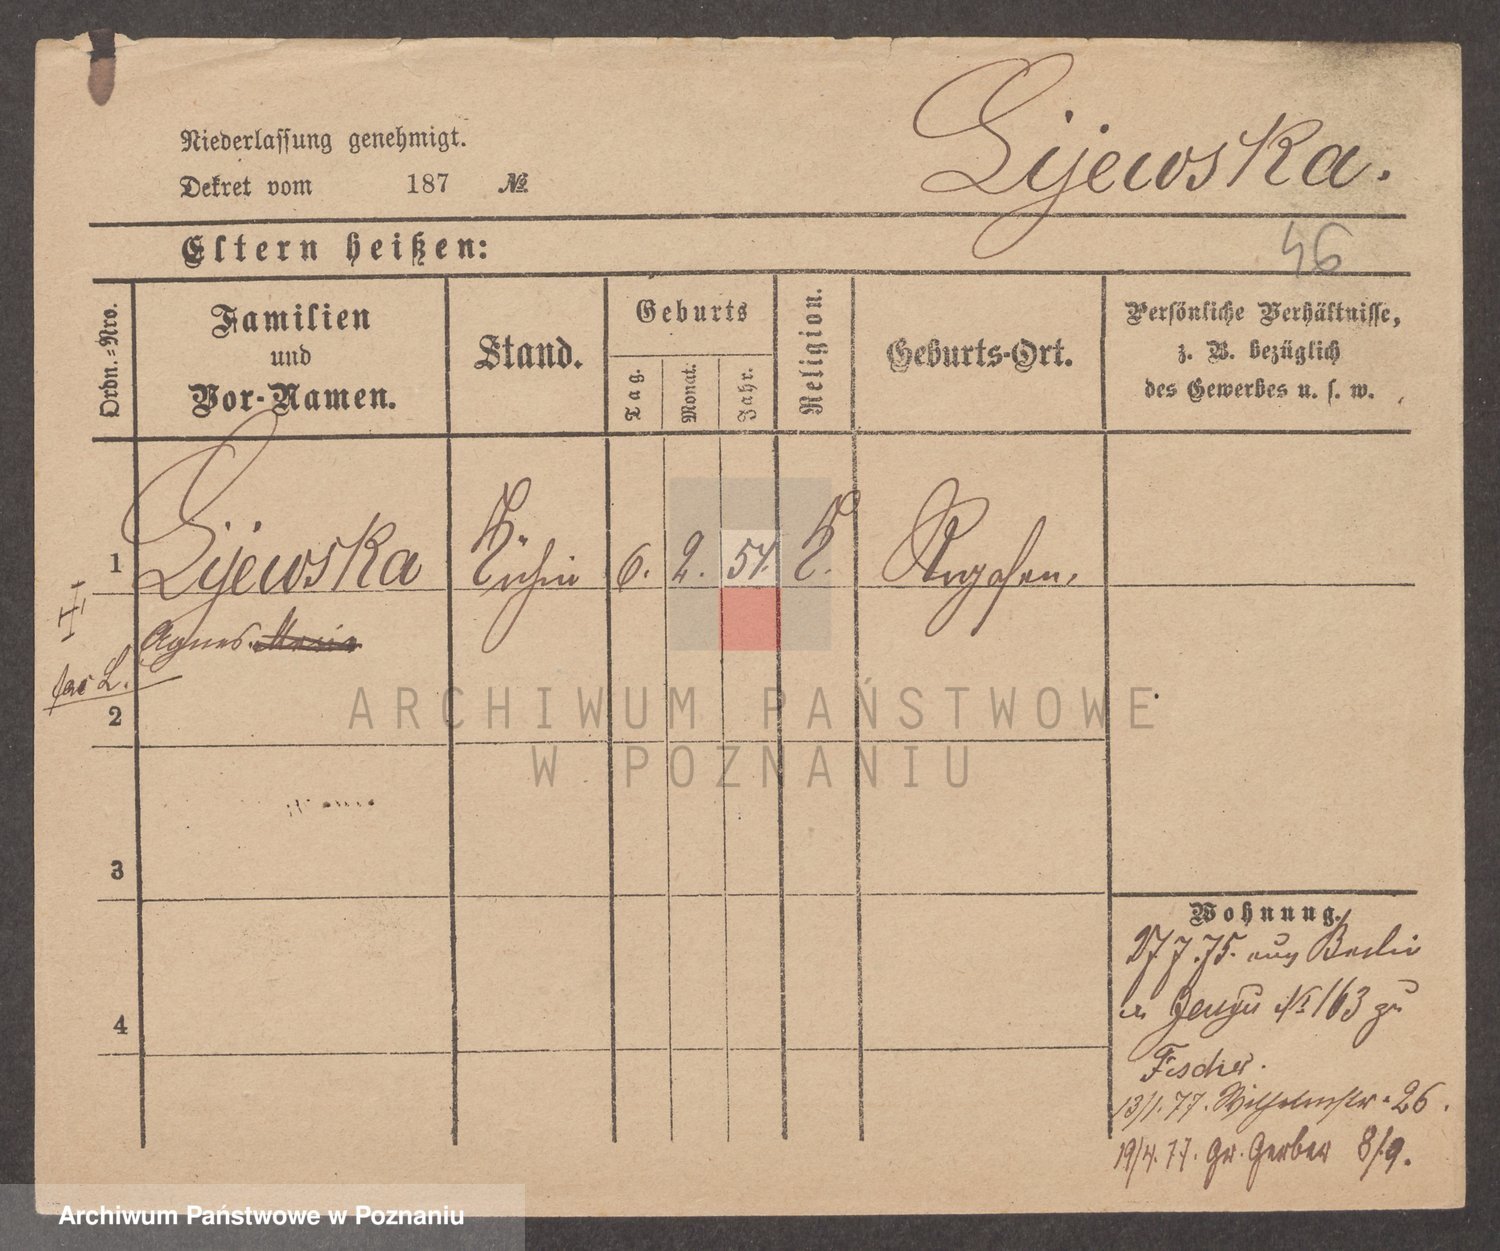 Niederlassung genehmigt.
Dekret vom 187 №
Lijewska.
46
Eltern heißen:
Ordn.=Nro.
Familien
und
Vor-Namen.
Stand.
Geburts
Tag.
Monat.
Jahr.
Religion.
Geburts-Ort.
Persönliche Verhältnisse,
z. B. bezüglich
des Gewerbes u. s. w.
1
Lijewska
6. 2. 54. K.
Rogasen.
Agnes Maria
L.
2
ARCHIWUM PAŃSTWOWE
W POZNANIU
3
Wohnung.
27 7.75. aus Berlin
№ 163 zu
Fischer.
4
13/1.77. Wilhelmstr. 26.
19/4.77. Gr. Gerber 8/9.
Archiwum Państwowe w Poznaniu